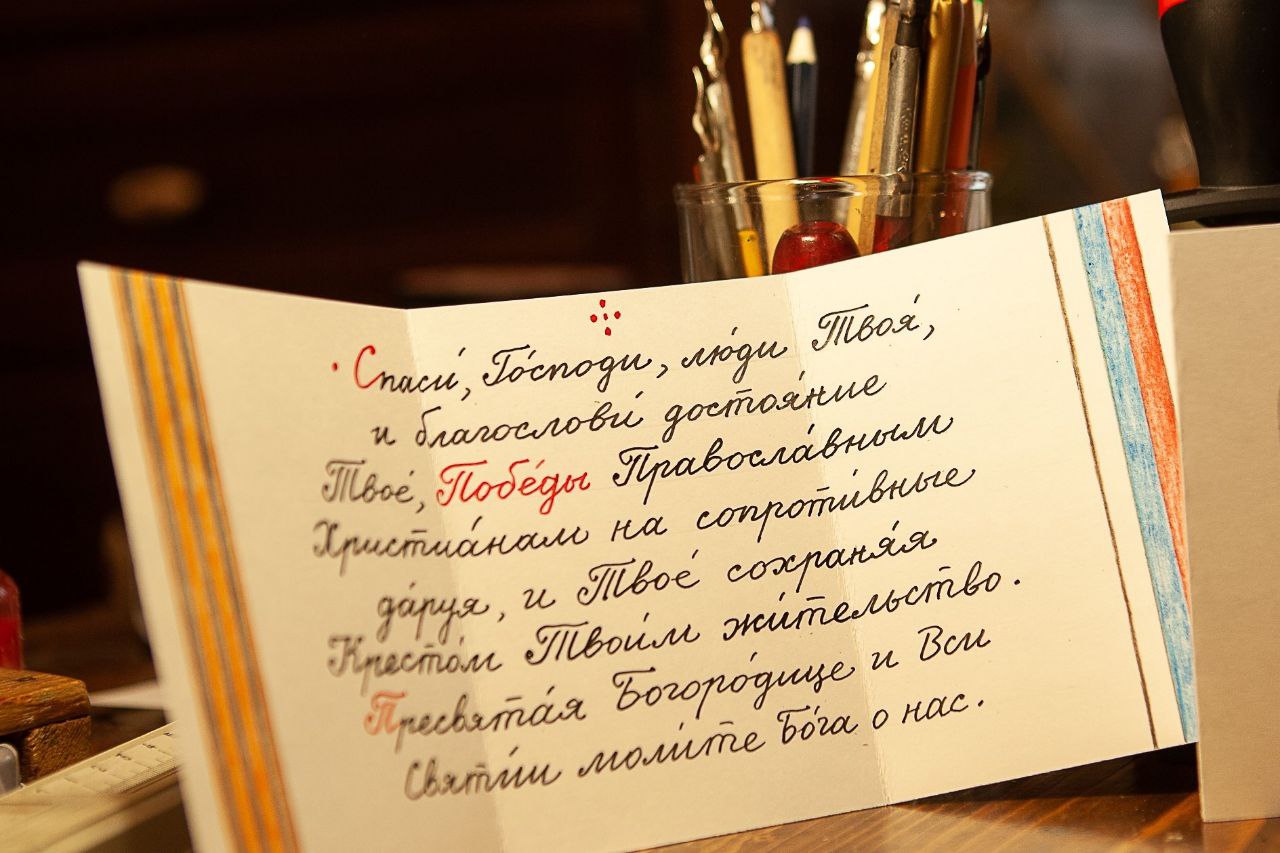 Спаси́, Го́споди, лю́ди Твоя́,
и благослови́ достоя́ние
Твое́, Побе́ды Правосла́вным
Христиа́нам на сопроти́вные
да́руя, и Твое́ сохраня́я
Кресто́м Твои́м жи́тельство.
Пресвята́я Богоро́дице и Вси
Святи́и моли́те Бо́га о нас.